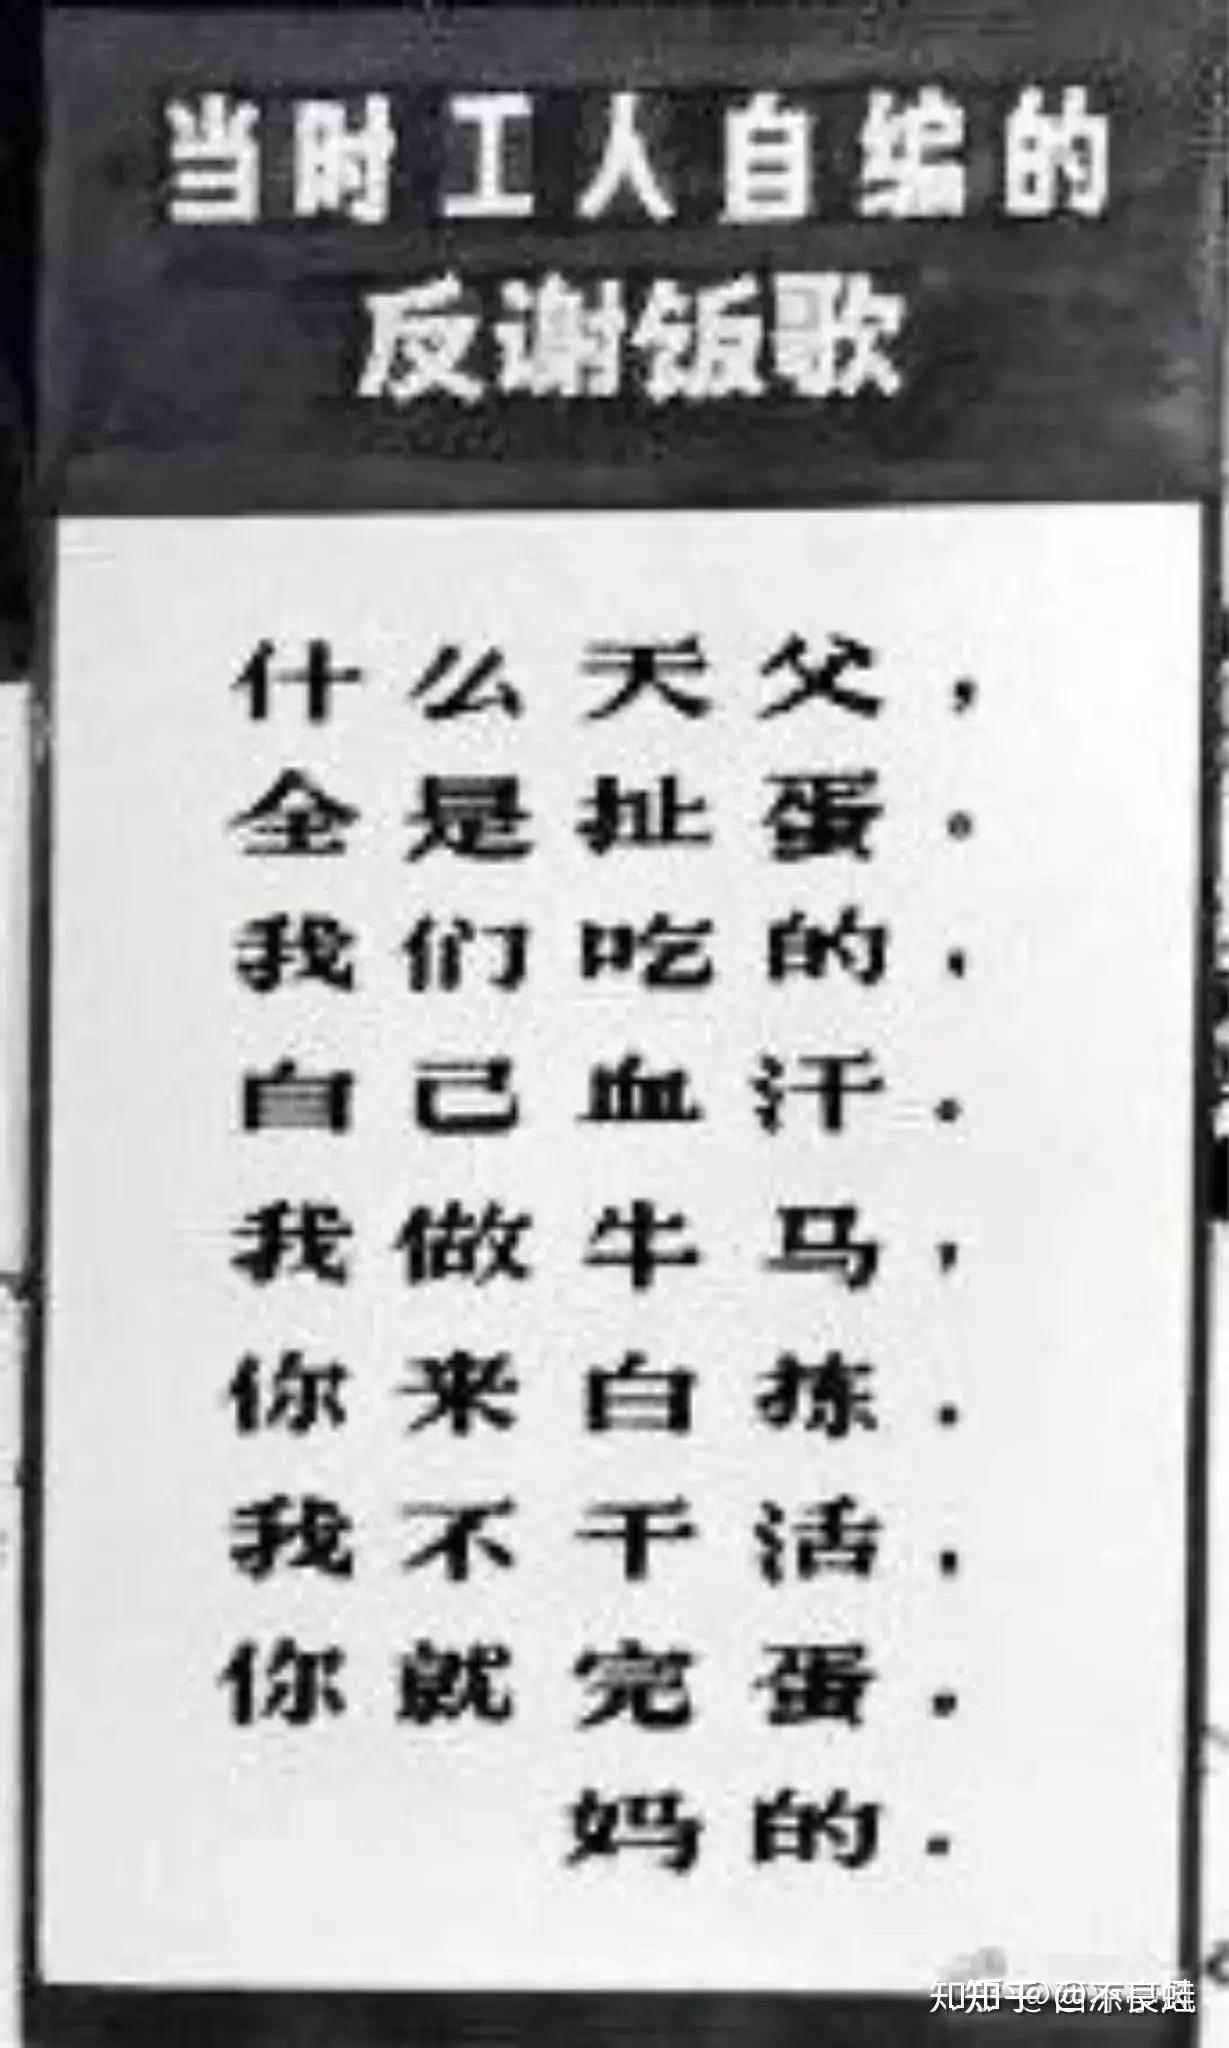 当时工人自编的
反谢饭歌
什么天父，
全是扯蛋。
我们吃的，
自己血汗。
我做牛马，
你来白拣．
我不干活，
你就完蛋．
妈的．